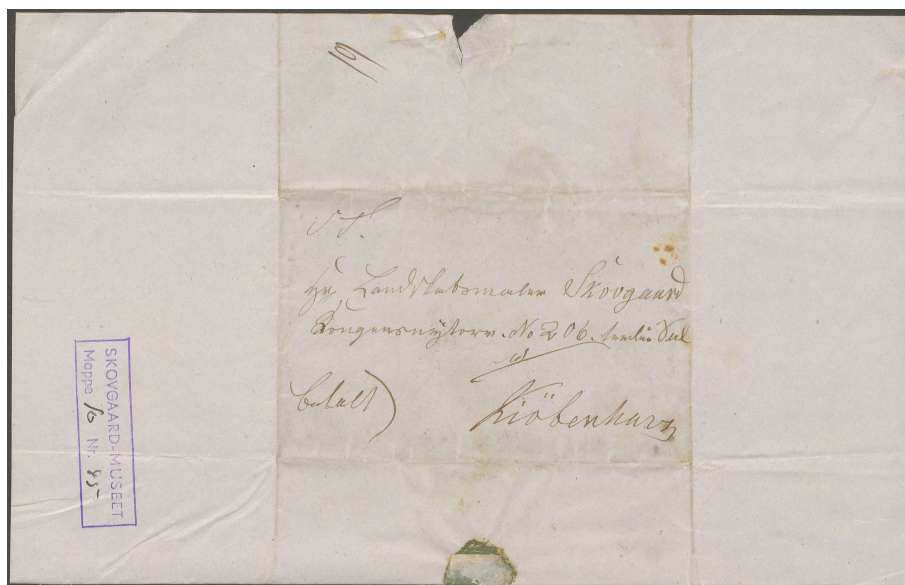 S. T.
Hr. Landskabsmaler Skovgaard
Kongensnÿtorv. No 206. Sal
betalt)
Kiöbenhavn
SKOVGAARD-MUSEET
Mappe 16 Nr. 85